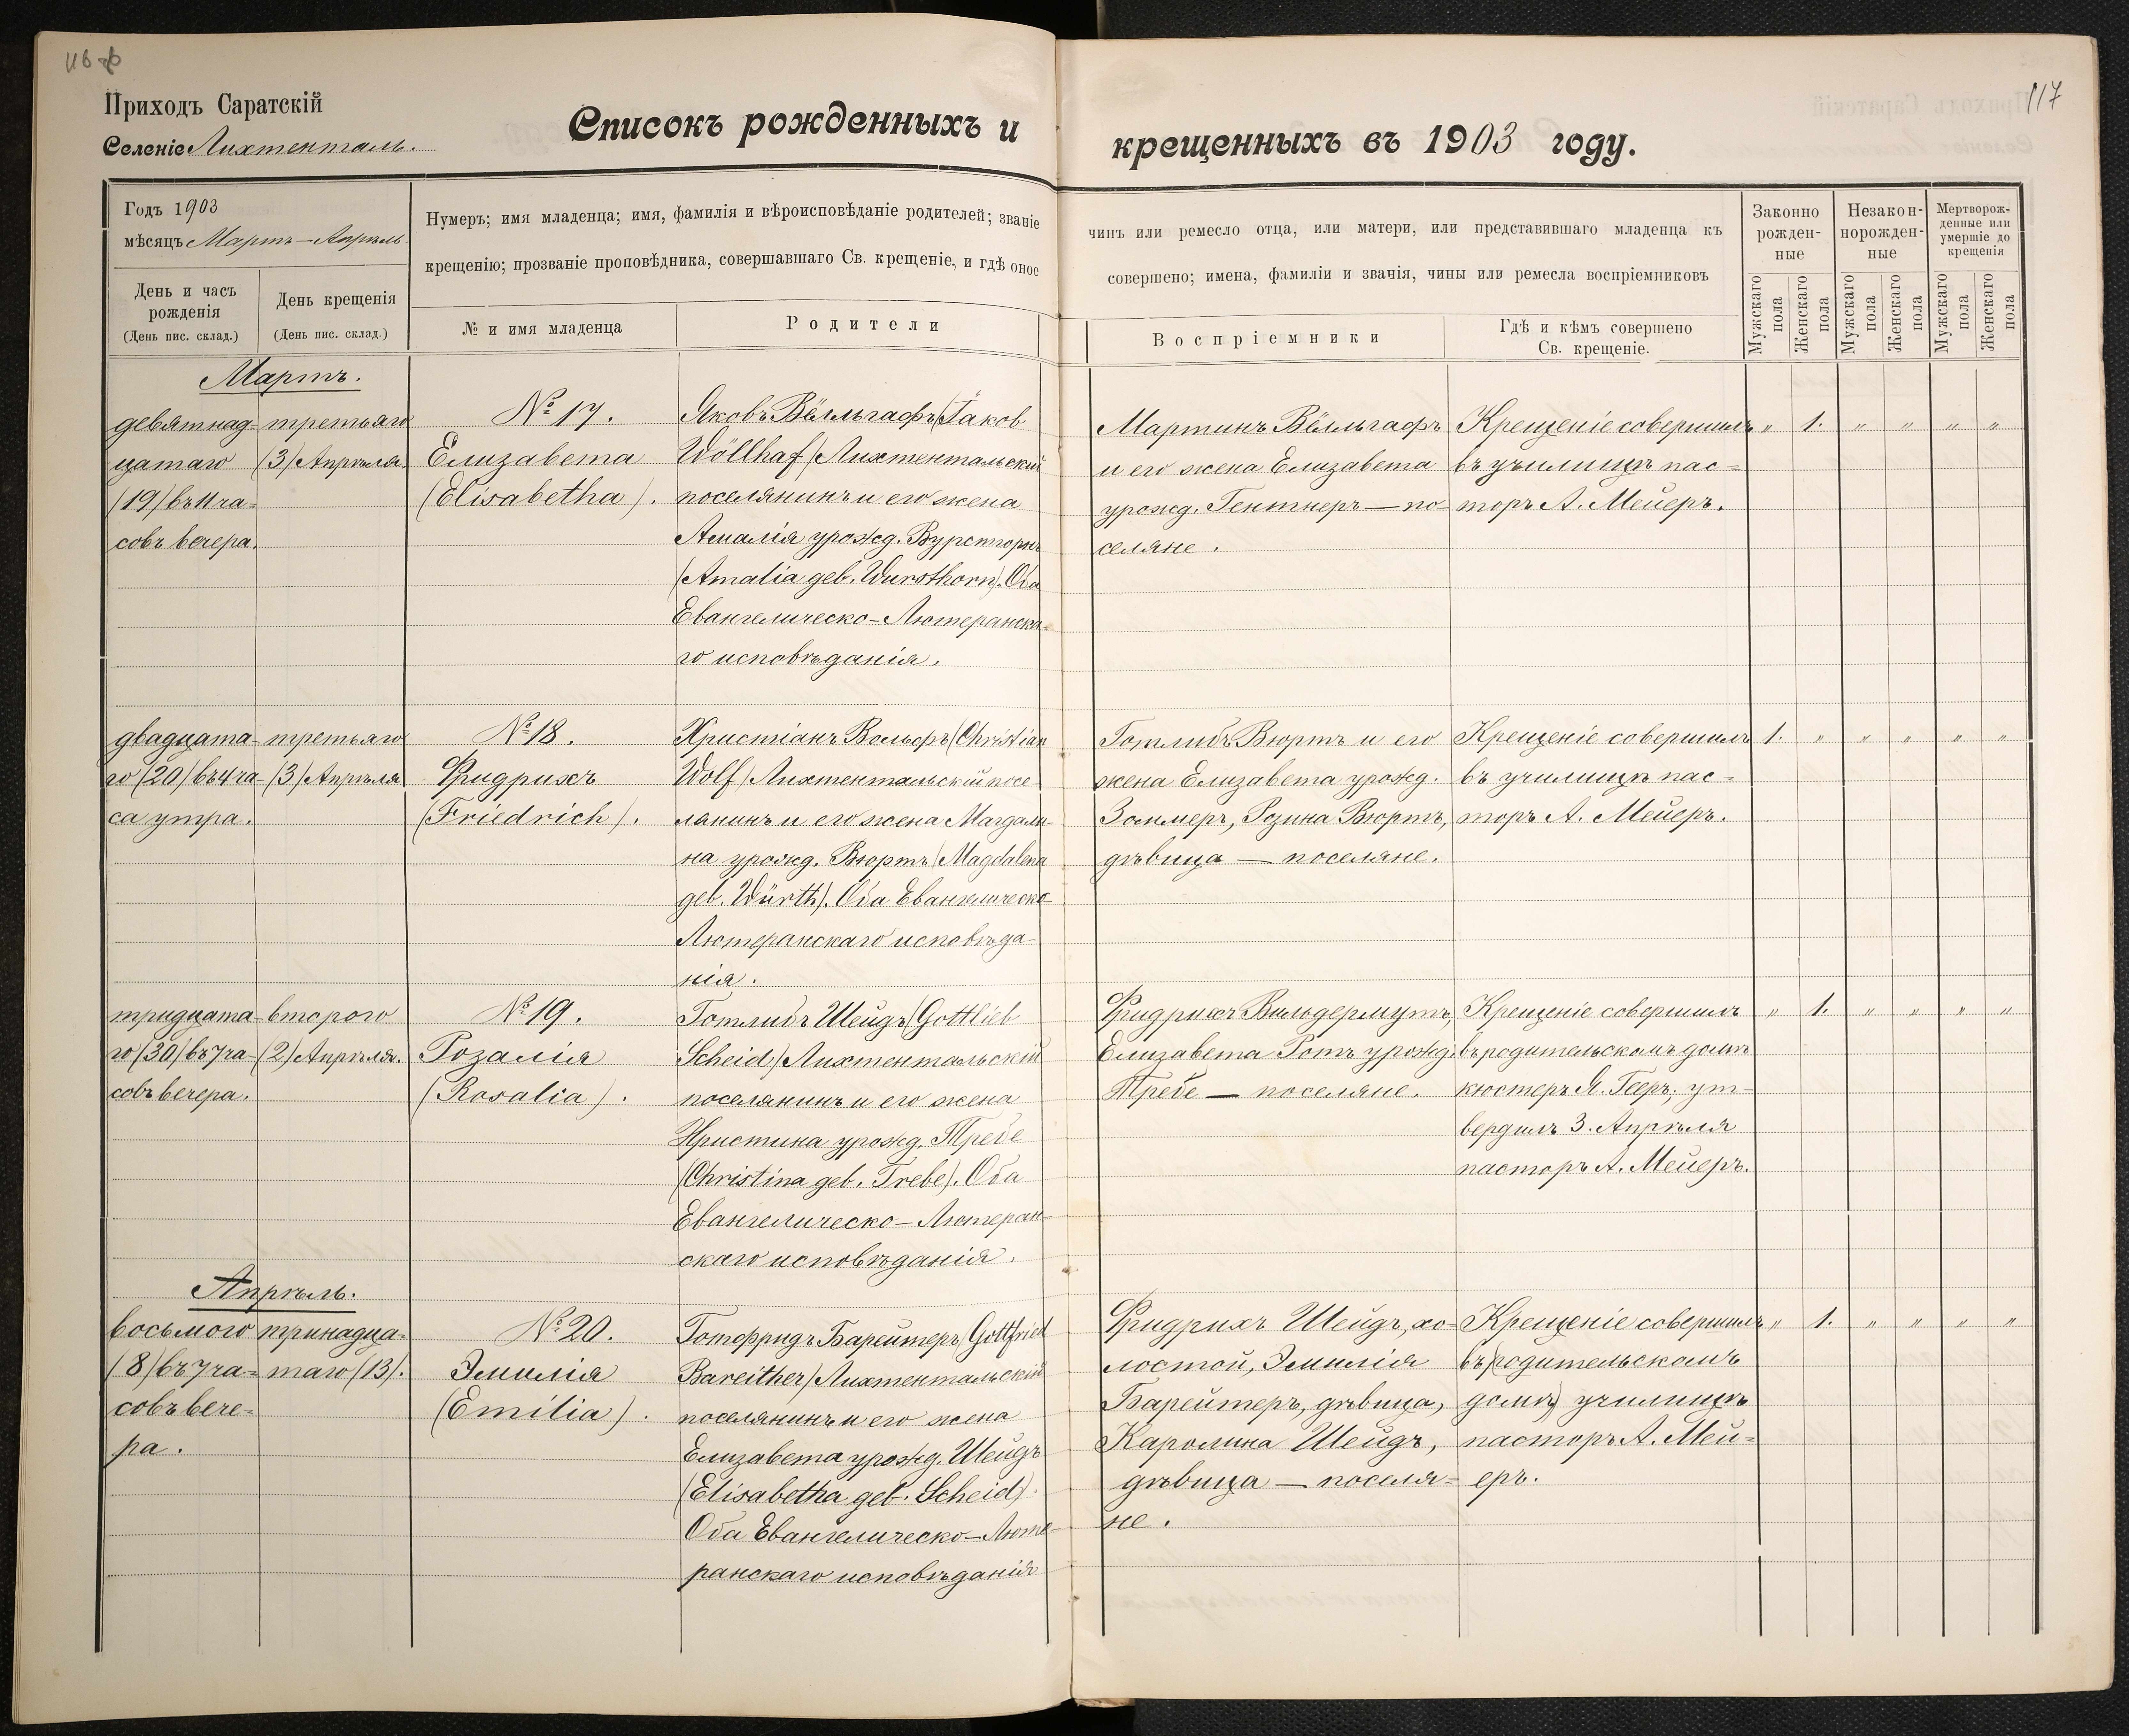 117
Приходъ Саратскій
Селеніе Лихтенталь.
Списокъ рожденныхъ и крещенныхъ въ 1903 году.
Годъ 1903
мѣсяцъ Мартъ – Апрѣль
День и часъ рожденія
(День пис. склад.)
День крещенія
(День пис. склад.)
Нумеръ; имя младенца; имя, фамилія и вѣроисповѣданіе родителей; званіе чинъ или ремесло отца, или матери, или представившаго младенца къ
крещенію; прозваніе проповѣдника, совершавшаго Св. крещеніе, и гдѣ оное совершено; имена, фамиліи и званія, чины или ремесла воспріемниковъ
№ и имя младенца
Родители
Воспріемники
Гдѣ и кѣмъ совершено
Св. крещеніе.
Законно рожден-ные
Незакон-норожден-ные
Мертворож-денные или умершіе до крещенія
Мужскаго пола
Женскаго пола
Мужскаго пола
Женскаго пола
Мужскаго пола
Женскаго пола
Мартъ.
девятнад-
цатаго
(19) въ 11 ча=
совъ вечера.
третьяго
(3) Апрѣля.
№ 17.
Елизавета
(Elisabetha).
Яковъ Вёлльгафъ (Jakob
Wöllhaf) Лихтентальскій
поселянинъ и его жена
Амалія урожд. Вурстгорнъ
(Amalia geb. Wursthorn). Оба
Евангелическо-Лютеранска=
го исповѣданія.
Мартинъ Вёлльгафъ
и его жена Елизавета
урожд. Гентнеръ — по-
селяне.
Крещеніе совершилъ
въ училищѣ пас=
торъ А. Мейеръ.
„ 1. „ „ „ „
двадцата-
го (20) въ 4 ча-
са утра.
третьяго
(3) Апрѣля
№ 18.
Фридрихъ
(Friedrich).
Христіанъ Вольфъ (Christian
Wolf) Лихтентальскій посе-
лянинъ и его жена Магдали-
на урожд. Вюртъ (Magdalena
geb. Würth). Оба Евангелическо-
Лютеранскаго исповѣда-
нія.
Готлибъ Вюртъ и его
жена Елизавета урожд.
Зоммеръ, Розина Вюртъ,
дѣвица — поселяне.
Крещеніе совершилъ
въ училищѣ пас=
торъ А. Мейеръ.
1. „ „ „ „ „
тридцата-
го (30) въ 7 ча-
совъ вечера.
второго
(2) Апрѣля.
№ 19.
Розалія
(Rosalia).
Готлибъ Шейдъ (Gottlieb
Scheid) Лихтентальскій
поселянинъ и его жена
Христина урожд. Требе
(Christina geb. Trebe). Оба
Евангелическо-Лютеран-
скаго исповѣданія.
Фридрихъ Вильдермутъ,
Елизавета Ротъ урожд.
Требе — поселяне.
Крещеніе совершилъ
въ родительскомъ домѣ
кюстеръ Я. Гееръ; ут-
вердилъ 3. Апрѣля
пасторъ А. Мейеръ.
„ 1. „ „ „ „
Апрѣль.
восьмого
(8) въ 7 ча=
совъ вече=
ра.
тринадца=
таго (13).
№ 20.
Эмилія
(Emilia).
Готфридъ Барейтеръ (Gottfried
Bareither) Лихтентальскій
поселянинъ и его жена
Елизавета урожд. Шейдъ
(Elisabetha geb. Scheid).
Оба Евангелическо-Люте-
ранскаго исповѣданія
Фридрихъ Шейдъ, хо-
лостой, Эмилія
Барейтеръ, дѣвица,
Каролина Шейдъ,
дѣвица — поселя=
не.
Крещеніе совершилъ
въ (родительскомъ
домѣ) училищѣ
пасторъ А. Мей=
еръ.
„ 1. „ „ „ „